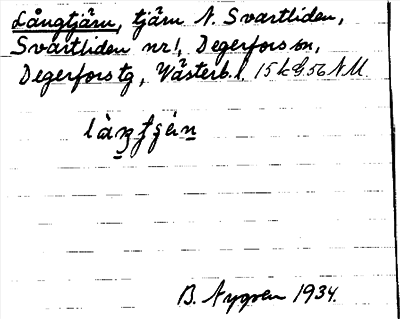 Långtjärn, tjärn N. Svartliden,
Svartliden nr 1, Degerfors sn,
Degerfors tg, Västerb. l.
B. Nygren 1934.